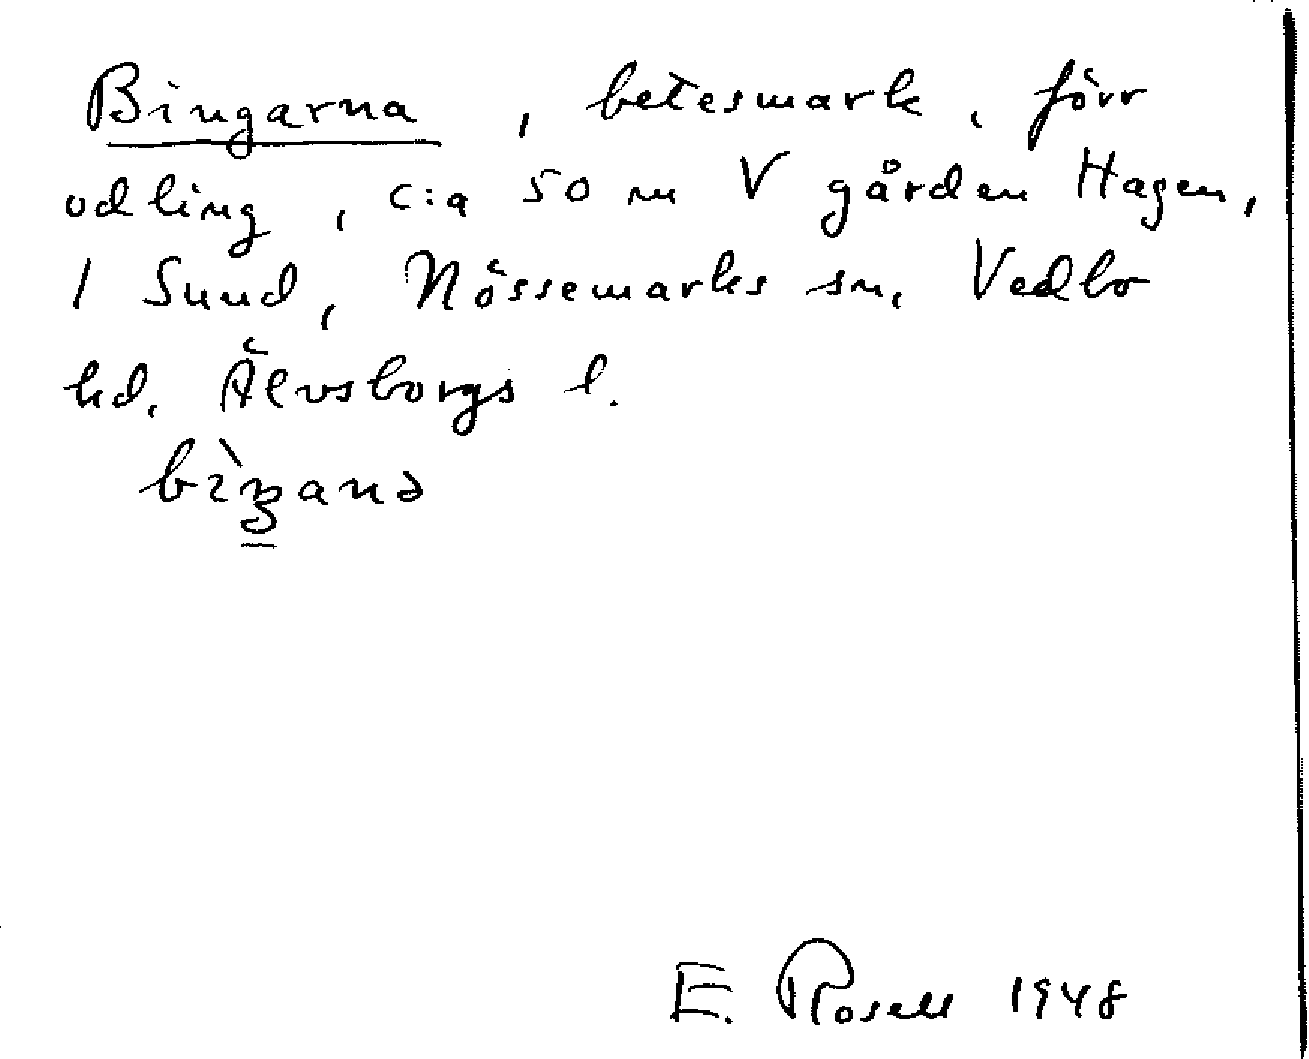 Bingarna, betesmark, förr
odling, c:a 50 m V gården Hagen,
1 Sund, Nössemarks sn, Vedbo
hd, Älvsborgs l.
E. Rosell 1948